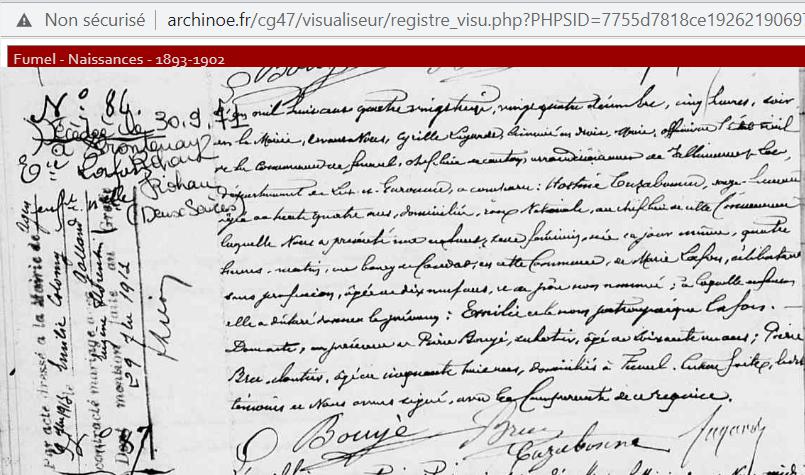 Non sécurisé | archinoe.fr/cg47/visualiseur/registre_visu.php?PHPSID=7755d7818ce1926219069
Fumel - Naissances - 1893-1902
N° 84.
Décédée le 30.9.71
à Frontenay
Rohan
Rohan
Deux-Sèvres
L'an mil huit cent quatre vingt treize, vingt quatre décembre, cinq heures, soir
en la Mairie, devant Nous, Cyrille Lagarde, Maire, officier de l'état civil
de la Commune de Fumel, chef lieu de canton, arrondissement de Villeneuve s/ Lot,
département de Lot-et-Garonne, a comparu : Cazabonne, sage-femme
âgée de trente quatre ans, domiciliée, rue Nationale, au chef lieu de cette Commune
laquelle Nous a présenté une enfant, sexe féminin, née ce jour même, quatre
heures, matin, au bourg de Condat, en cette Commune, de Marie Lafon, célibataire
sans profession, âgée de dix neuf ans, et de père non nommé ; à laquelle enfant
elle a déclaré donner le prénom : Emilie et le nom patronymique Lafon. -
Dont acte, en présence de Pierre Bouyé, âgé de soixante ans ; Pierre
Bru, cloutier, âgé de cinquante huit ans, domiciliés à Fumel. Lecture faite, les dits
témoins et Nous avons signé, avec la Comparante de ce requise.
Bouyé Bru Cazabonne Lagarde
Par acte dressé à la Mairie de Agen
le 9 Jer 1912 Emilie
a contracté mariage avec
Eugène Florentin
Dont mention faite au Greffe
29 Jer 1912